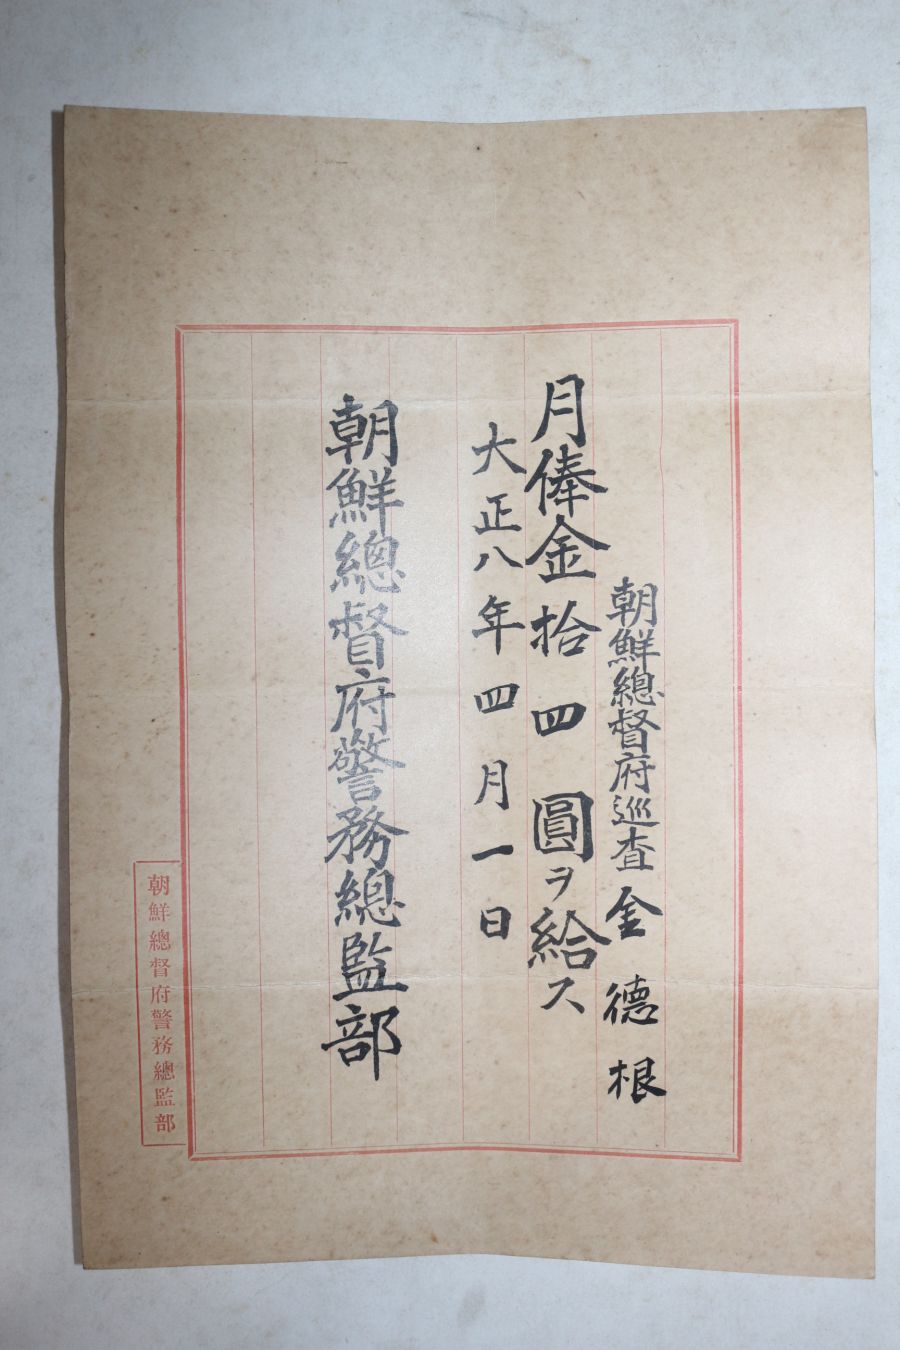 朝鮮總督府巡査 金德根
月俸金拾四圓ヲ給ス
大正八年四月一日
朝鮮總督府警務總監部
朝鮮總督府警務總監部